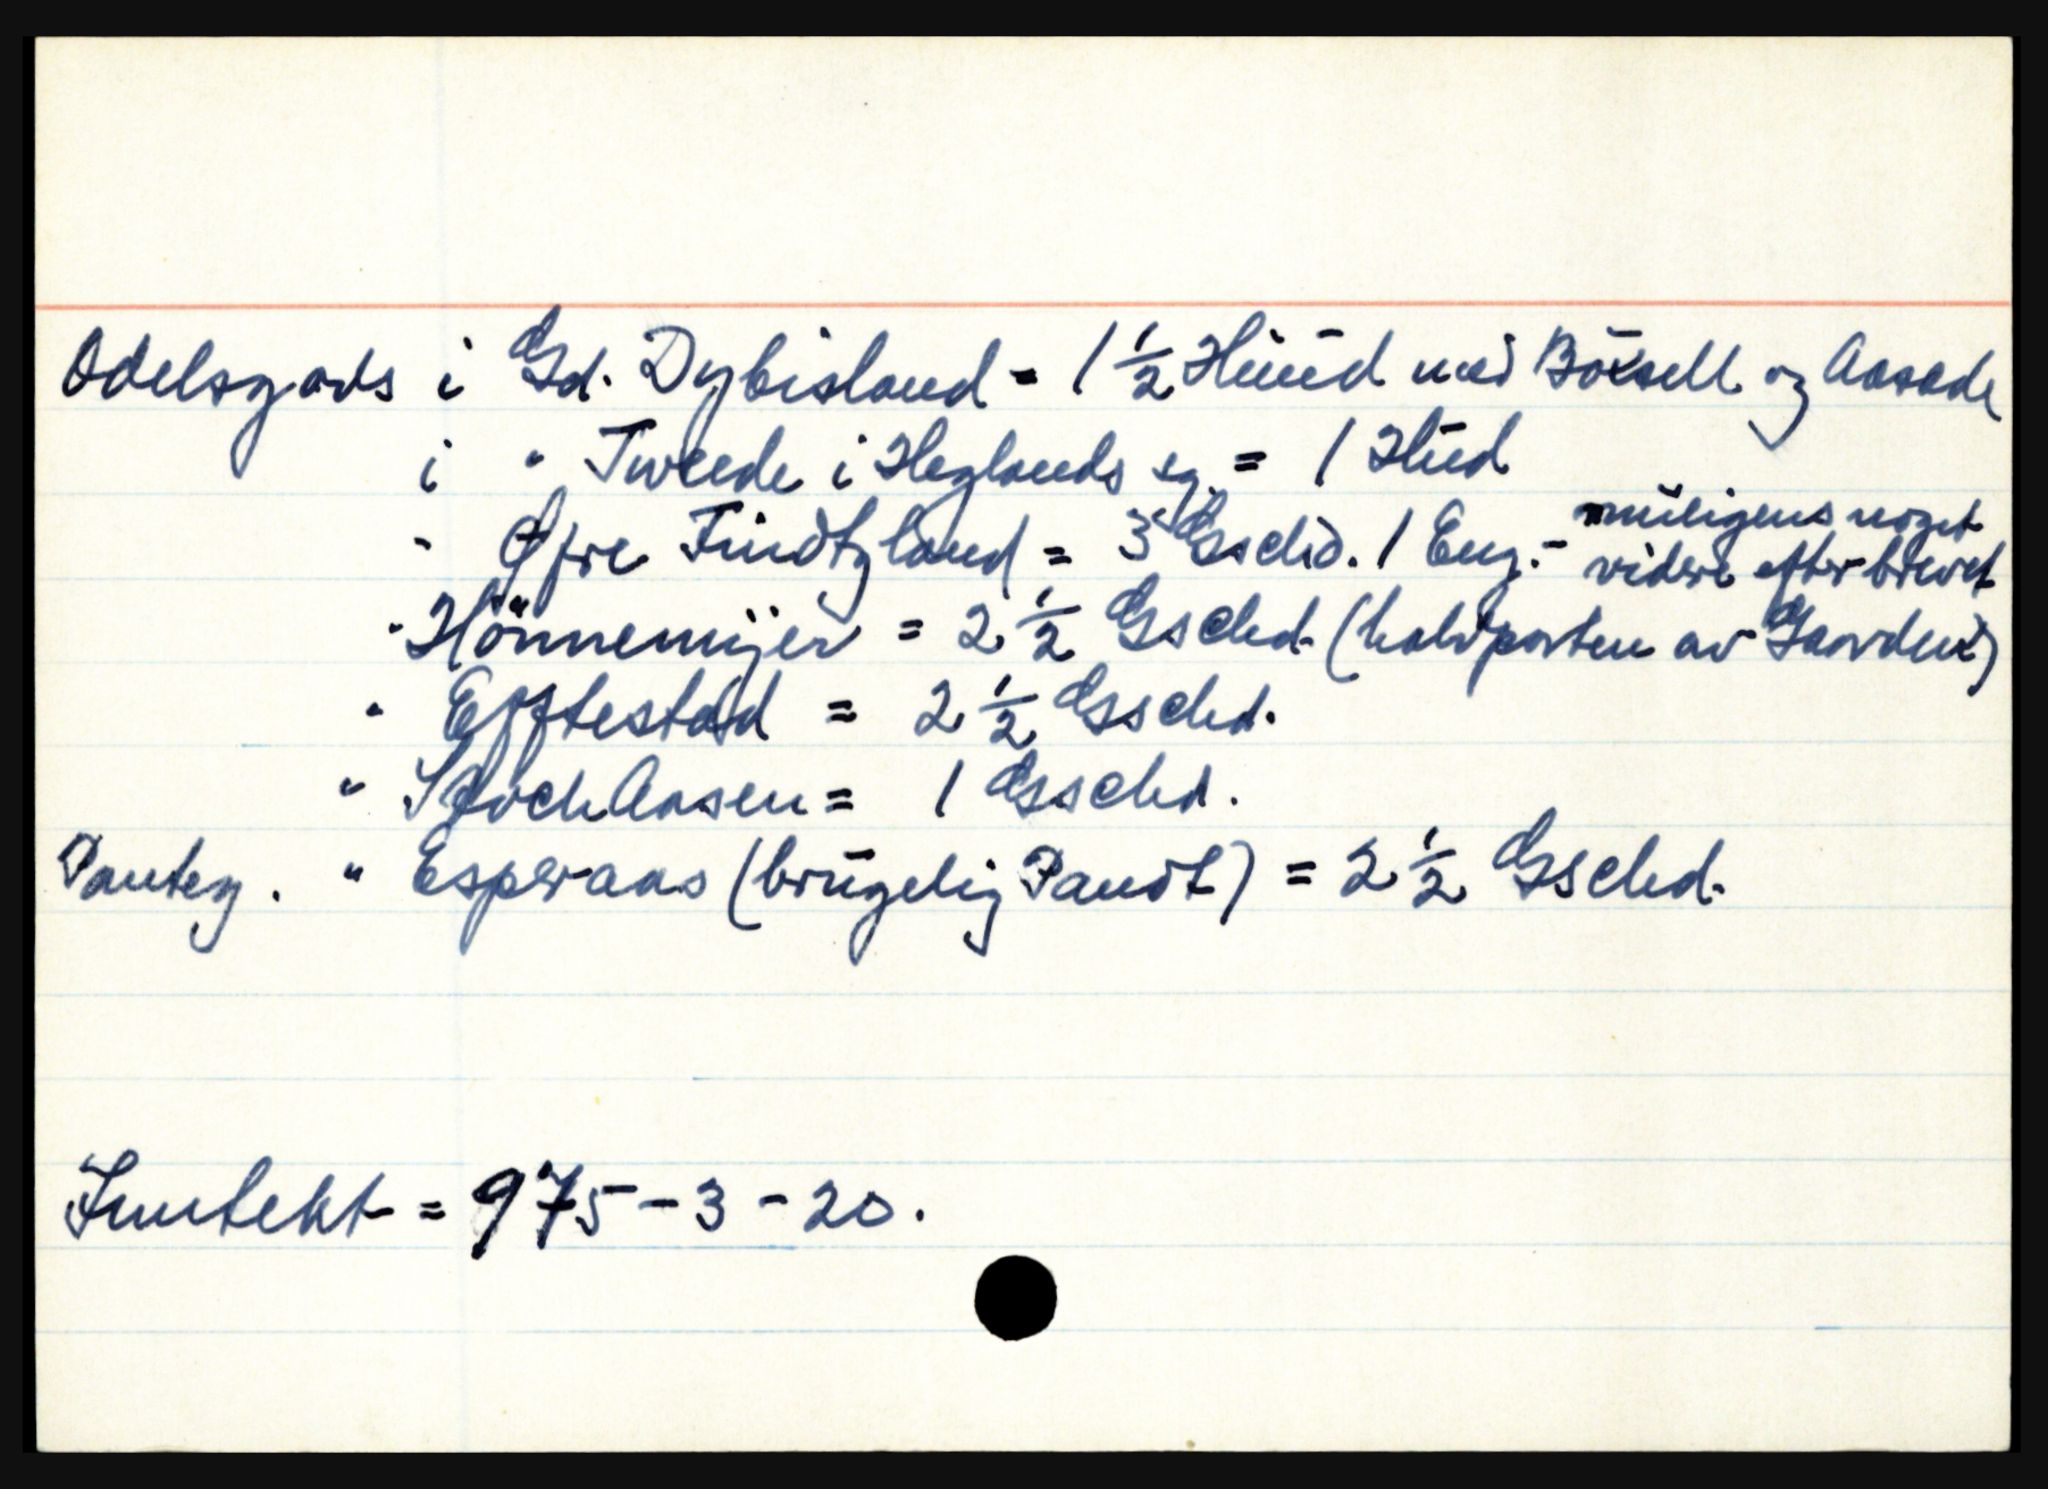 Odelsgods i Gd. Dybisland = 1 1/2 Huud med Böxsell og Aasæde
i " Tweede i Heglands sg. = 1 Hud
" Øfre Findtzland = 3 Gschd. 1 Eng. - muligens noget videre efter brevet
" Hönnemijer = 2 1/2 Gschd. (halvparten av Gaarden)
" Efftestad = 2 1/2 Gschd.
" StochAasen = 1 Gschd.
Panteg. " Esperaas (brugelig Pandt) = 2 1/2 Gschd.
Inntekt = 975 - 3 - 20.